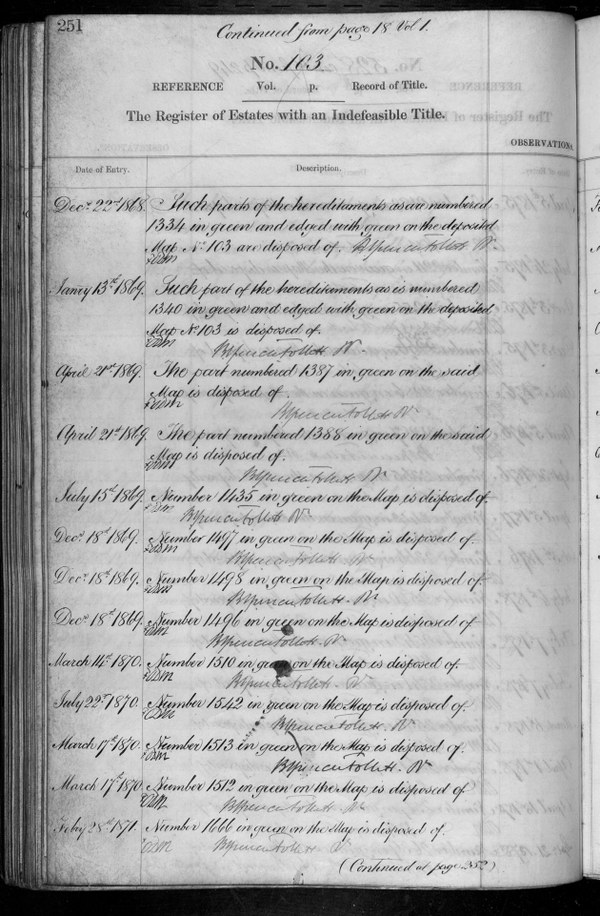 251
Continued from page 18 Vol 1.
No. 103
REFERENCE Vol. p. Record of Title.
The Register of Estates with an Indefeasible Title.
OBSERVATIONS
Date of Entry. Description.
Decr. 22nd 1868. Such parts of the hereditaments as are numbered
1334 in green and edged with green on the deposited
Map No. 103 are disposed of.
Janry 13th 1869. Such part of the hereditaments as is numbered
1340 in green and edged with green on the deposited
Map No 103 is disposed of.
April 21st 1869. The part numbered 1387 in green on the said
Map is disposed of.
April 21st 1869. The part numbered 1388 in green on the said
Map is disposed of.
July 15th 1869. Number 1435 in green on the Map is disposed of.
Decr. 18th 1869. Number 1497 in green on the Map is disposed of.
Decr. 18th 1869. Number 1498 in green on the Map is disposed of.
Decr. 18th 1869. Number 1496 in green on the Map is disposed of
March 14th 1870. Number 1510 in green on the Map is disposed of.
July 22nd 1870. Number 1542 in green on the Map is disposed of.
March 17th 1870. Number 1513 in green on the Map is disposed of.
March 17th 1870. Number 1512 in green on the Map is disposed of
Feby 28th 1871. Number 1666 in green on the Map is disposed of.
(Continued at page 252)